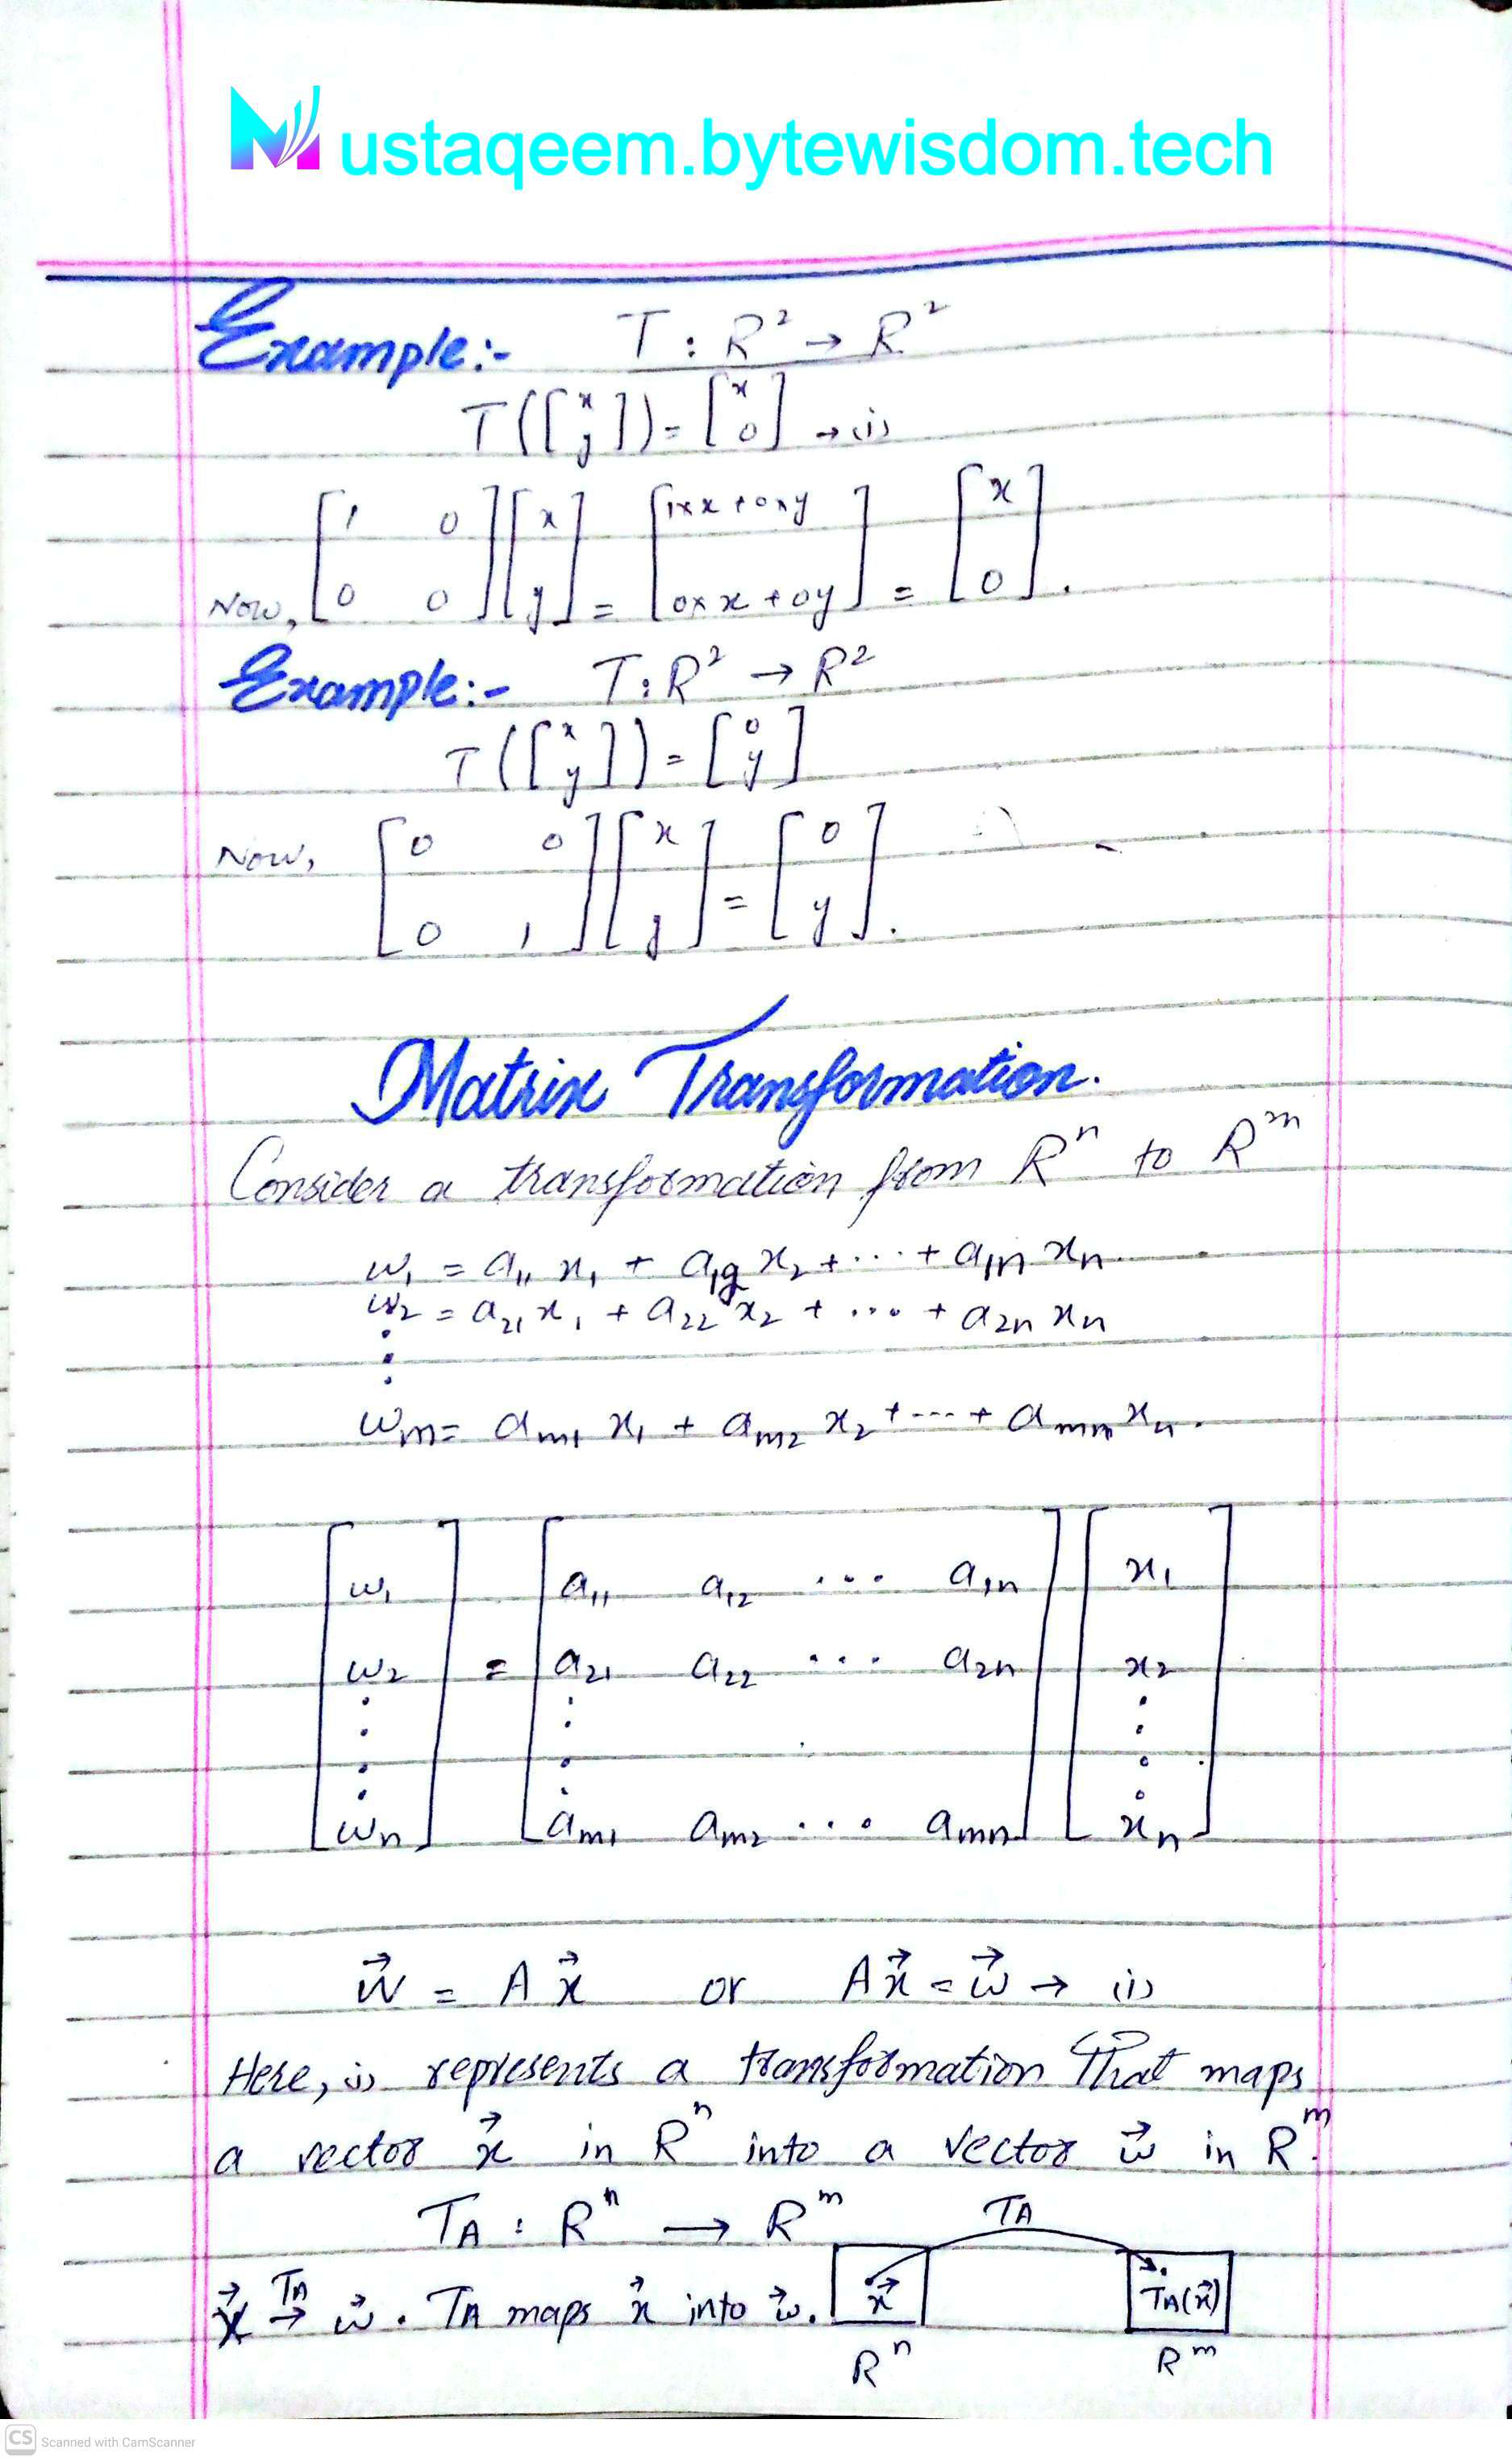 Mustaqeem.bytewisdom.tech
Example:- T : R² → R²
T([x y]) = [x 0] → (i)
Now, [1 0; 0 0] [x; y] = [1×x + 0×y; 0×x + 0y] = [x; 0].
Example:- T : R² → R²
T([x y]) = [0 y]
Now, [0 0; 0 1] [x; y] = [0; y].
Matrix Transformation.
Consider a transformation from Rⁿ to Rᵐ
w₁ = a₁₁ x₁ + a₁₂ x₂ + ... + a₁ₙ xₙ.
w₂ = a₂₁ x₁ + a₂₂ x₂ + ... + a₂ₙ xₙ
⋮
wₘ = aₘ₁ x₁ + aₘ₂ x₂ + ... + aₘₙ xₙ.
[w₁] = [a₁₁ a₁₂ ... a₁ₙ] [x₁]
[w₂] [a₂₁ a₂₂ ... a₂ₙ] [x₂]
⋮ ⋮ ⋮
[wₙ] [aₘ₁ aₘ₂ ... aₘₙ] [xₙ]
w⃗ = A x⃗ or A x⃗ = w⃗ → (i)
Here, (i) represents a transformation that maps
a vector x⃗ in Rⁿ into a vector w⃗ in Rᵐ.
TA : Rⁿ → Rᵐ TA
x⃗ TA→ w⃗. TA maps x⃗ into w⃗. x⃗ TA(x⃗)
Rⁿ Rᵐ
CS Scanned with CamScanner